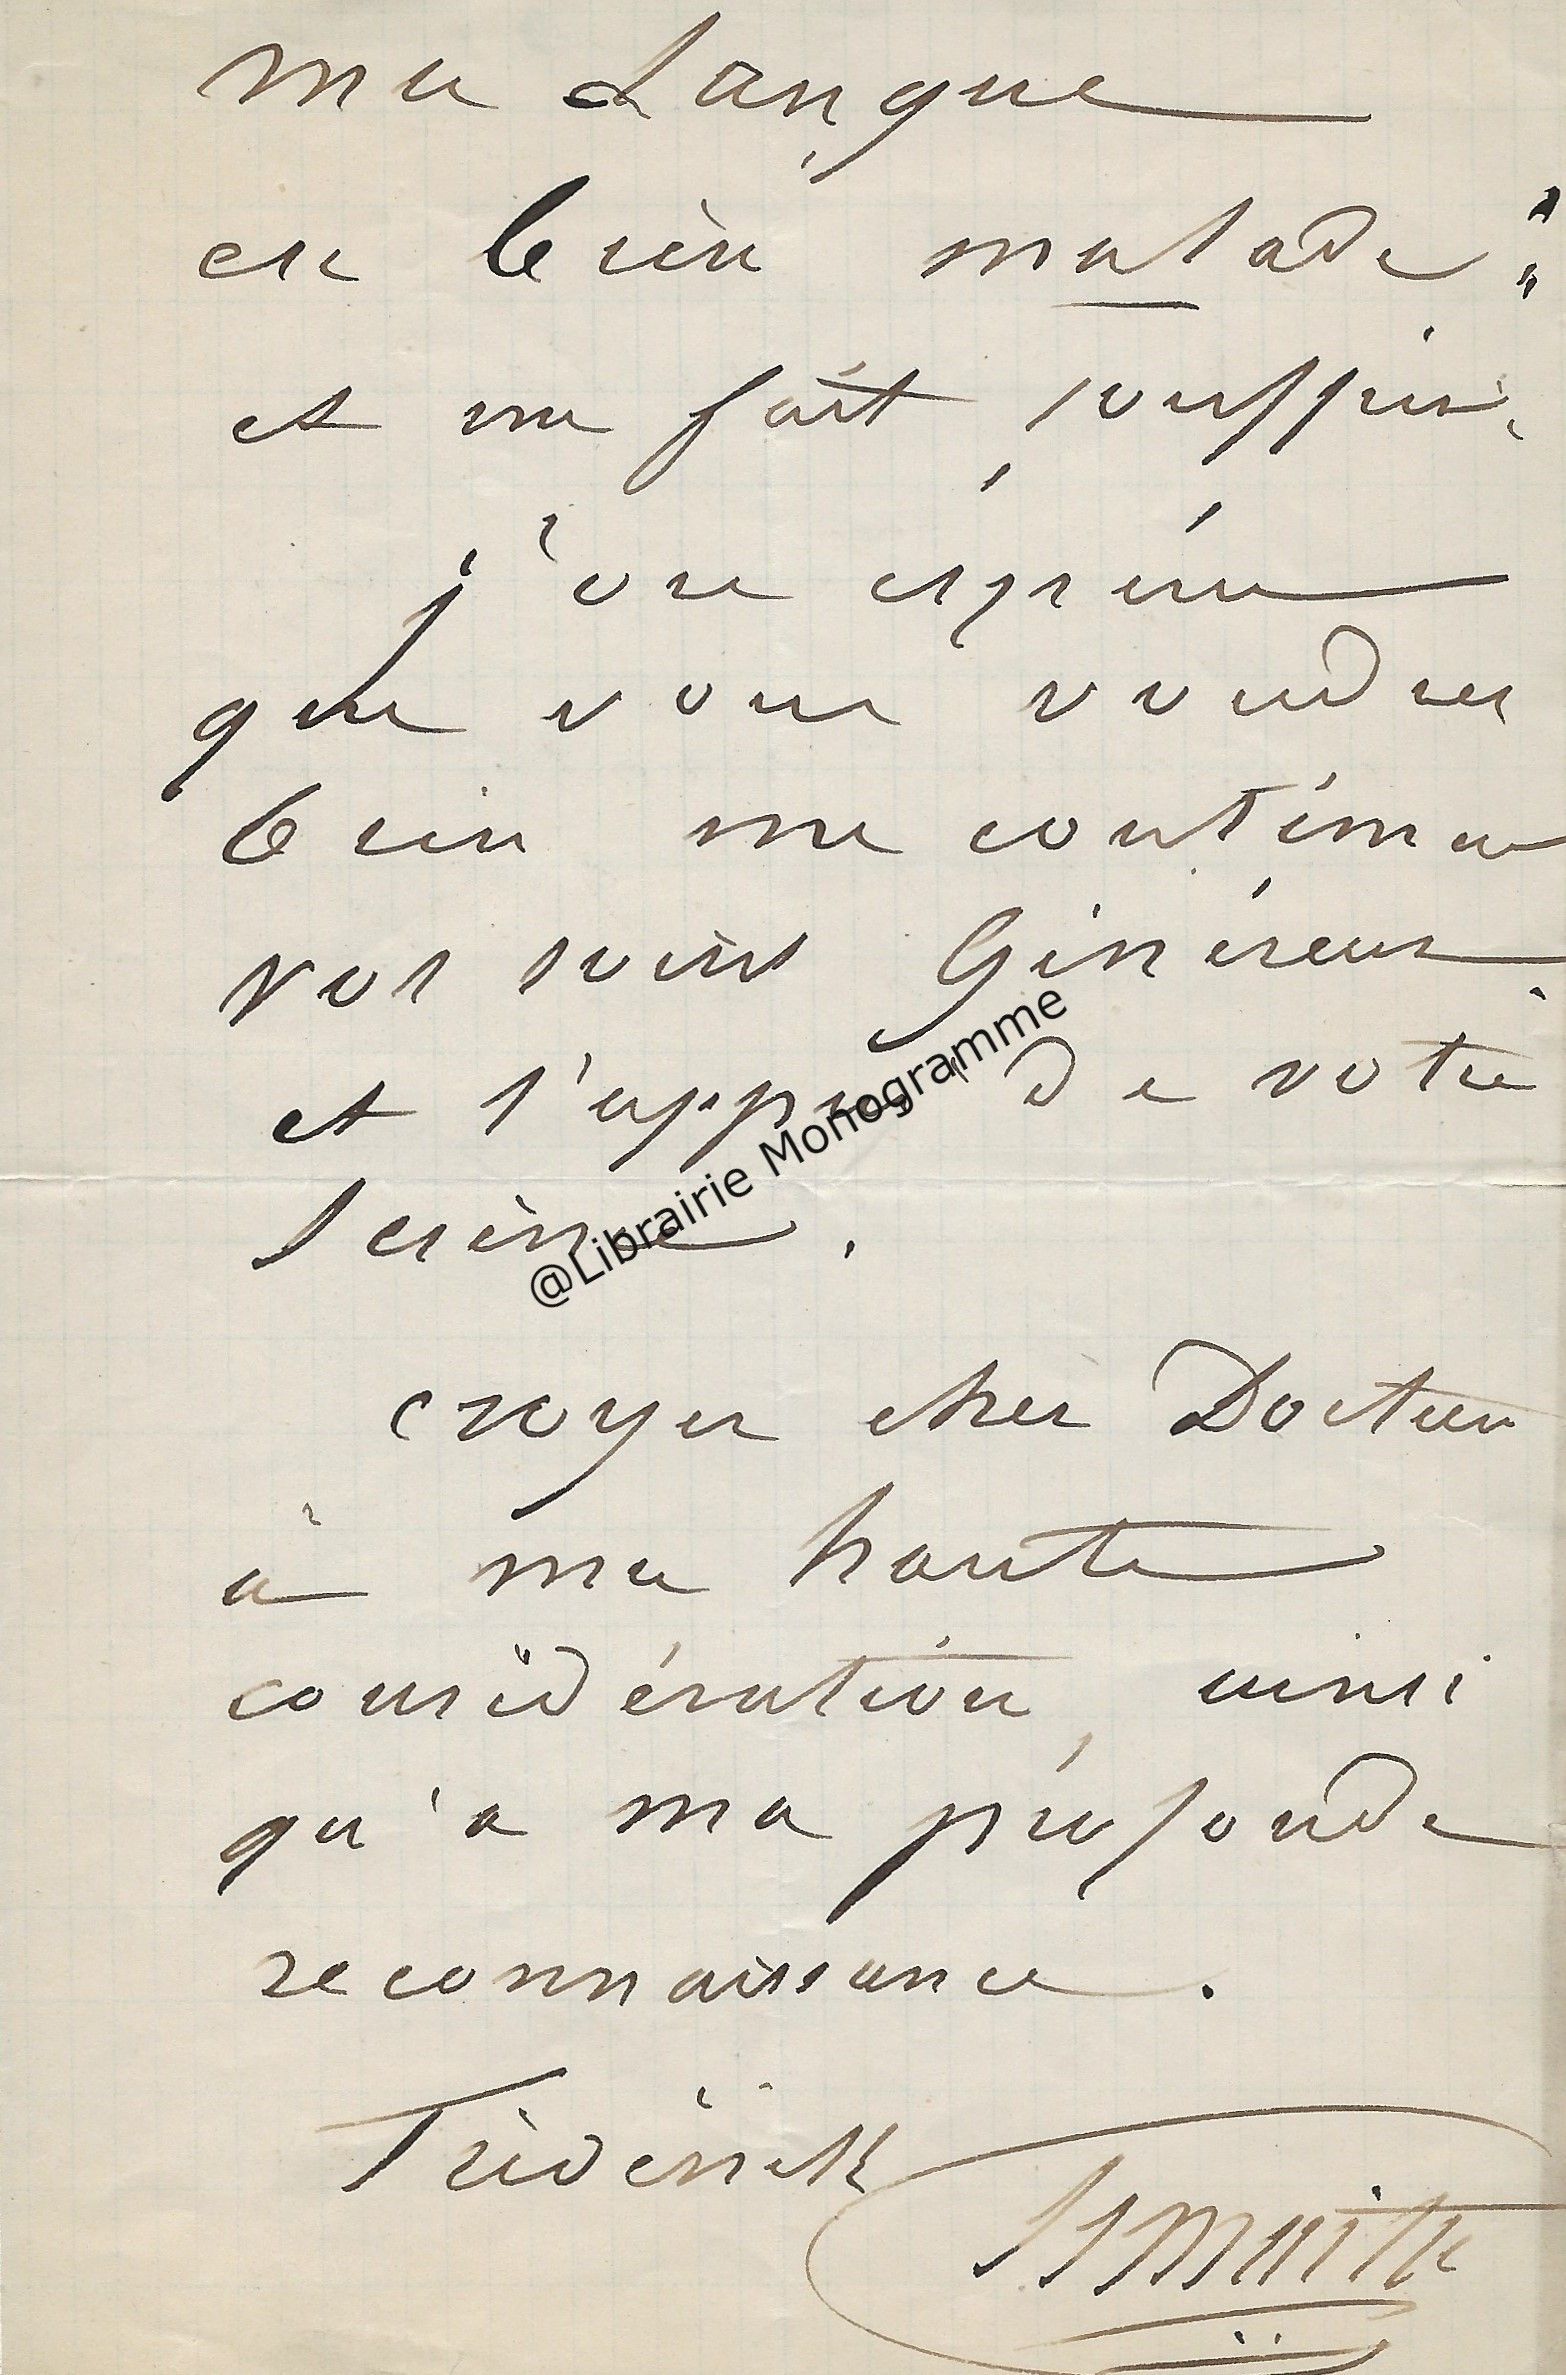 ma Langue
est bien malade
et me fait souffrir.
j'ose espérer
que vous voudrez
bien me continuer
vos soins Généreux
et l'appui de votre
Science.
@Librairie Monogramme
croyez cher Docteur
à ma haute
considération, ainsi
qu'a ma profonde
reconnaissance.
Frédérick
Lemaître